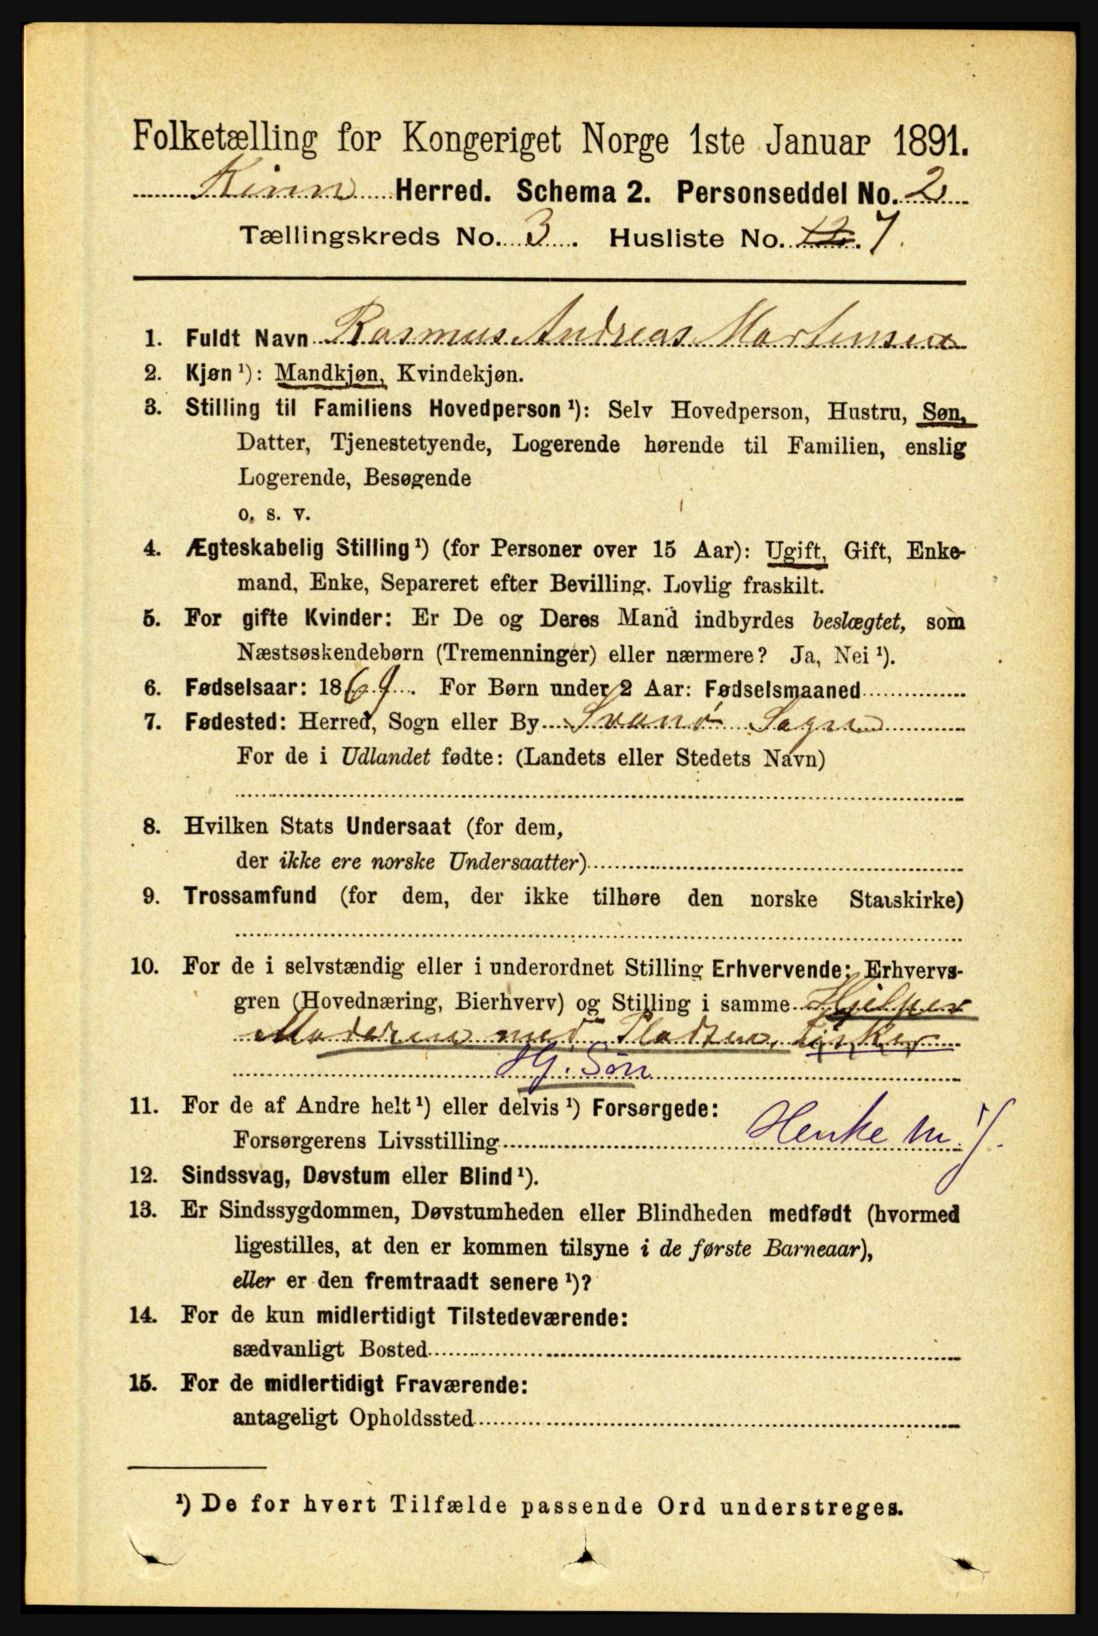 Folketælling for Kongeriget Norge 1ste Januar 1891.
Kinn Herred. Schema 2. Personseddel No. 2
Tællingskreds No. 3. Husliste No. 12. 7.
1. Fuldt Navn Rasmus Andreas Martensen
2. Kjøn¹): Mandkjøn, Kvindekjøn.
3. Stilling til Familiens Hovedperson¹): Selv Hovedperson, Hustru, Søn,
Datter, Tjenestetyende, Logerende hørende til Familien, enslig
Logerende, Besøgende
o. s. v.
4. Ægteskabelig Stilling¹) (for Personer over 15 Aar): Ugift, Gift, Enke-
mand, Enke, Separeret efter Bevilling. Lovlig fraskilt.
5. For gifte Kvinder: Er De og Deres Mand indbyrdes beslægtet, som
Næstsøskendebørn (Tremenninger) eller nærmere? Ja, Nei¹).
6. Fødselsaar: 1869. For Børn under 2 Aar: Fødselsmaaned
7. Fødested: Herred, Sogn eller By Svanø Sogn
For de i Udlandet fødte: (Landets eller Stedets Navn)
8. Hvilken Stats Undersaat (for dem,
der ikke ere norske Undersaatter)
9. Trossamfund (for dem, der ikke tilhøre den norske Statskirke)
10. For de i selvstændig eller i underordnet Stilling Erhvervende: Erhvervs-
gren (Hovednæring, Bierhverv) og Stilling i samme Hjelper
Moderen med Pladsen, Fisker
Hj. Søn
11. For de af Andre helt¹) eller delvis¹) Forsørgede:
Forsørgerens Livsstilling Henke m. J.
12. Sindssvag, Døvstum eller Blind¹).
13. Er Sindssygdommen, Døvstumheden eller Blindheden medfødt (hvormed
ligestilles, at den er kommen tilsyne i de første Barneaar),
eller er den fremtraadt senere¹)?
14. For de kun midlertidigt Tilstedeværende:
sædvanligt Bosted
15. For de midlertidigt Fraværende:
antageligt Opholdssted
¹) De for hvert Tilfælde passende Ord understreges.